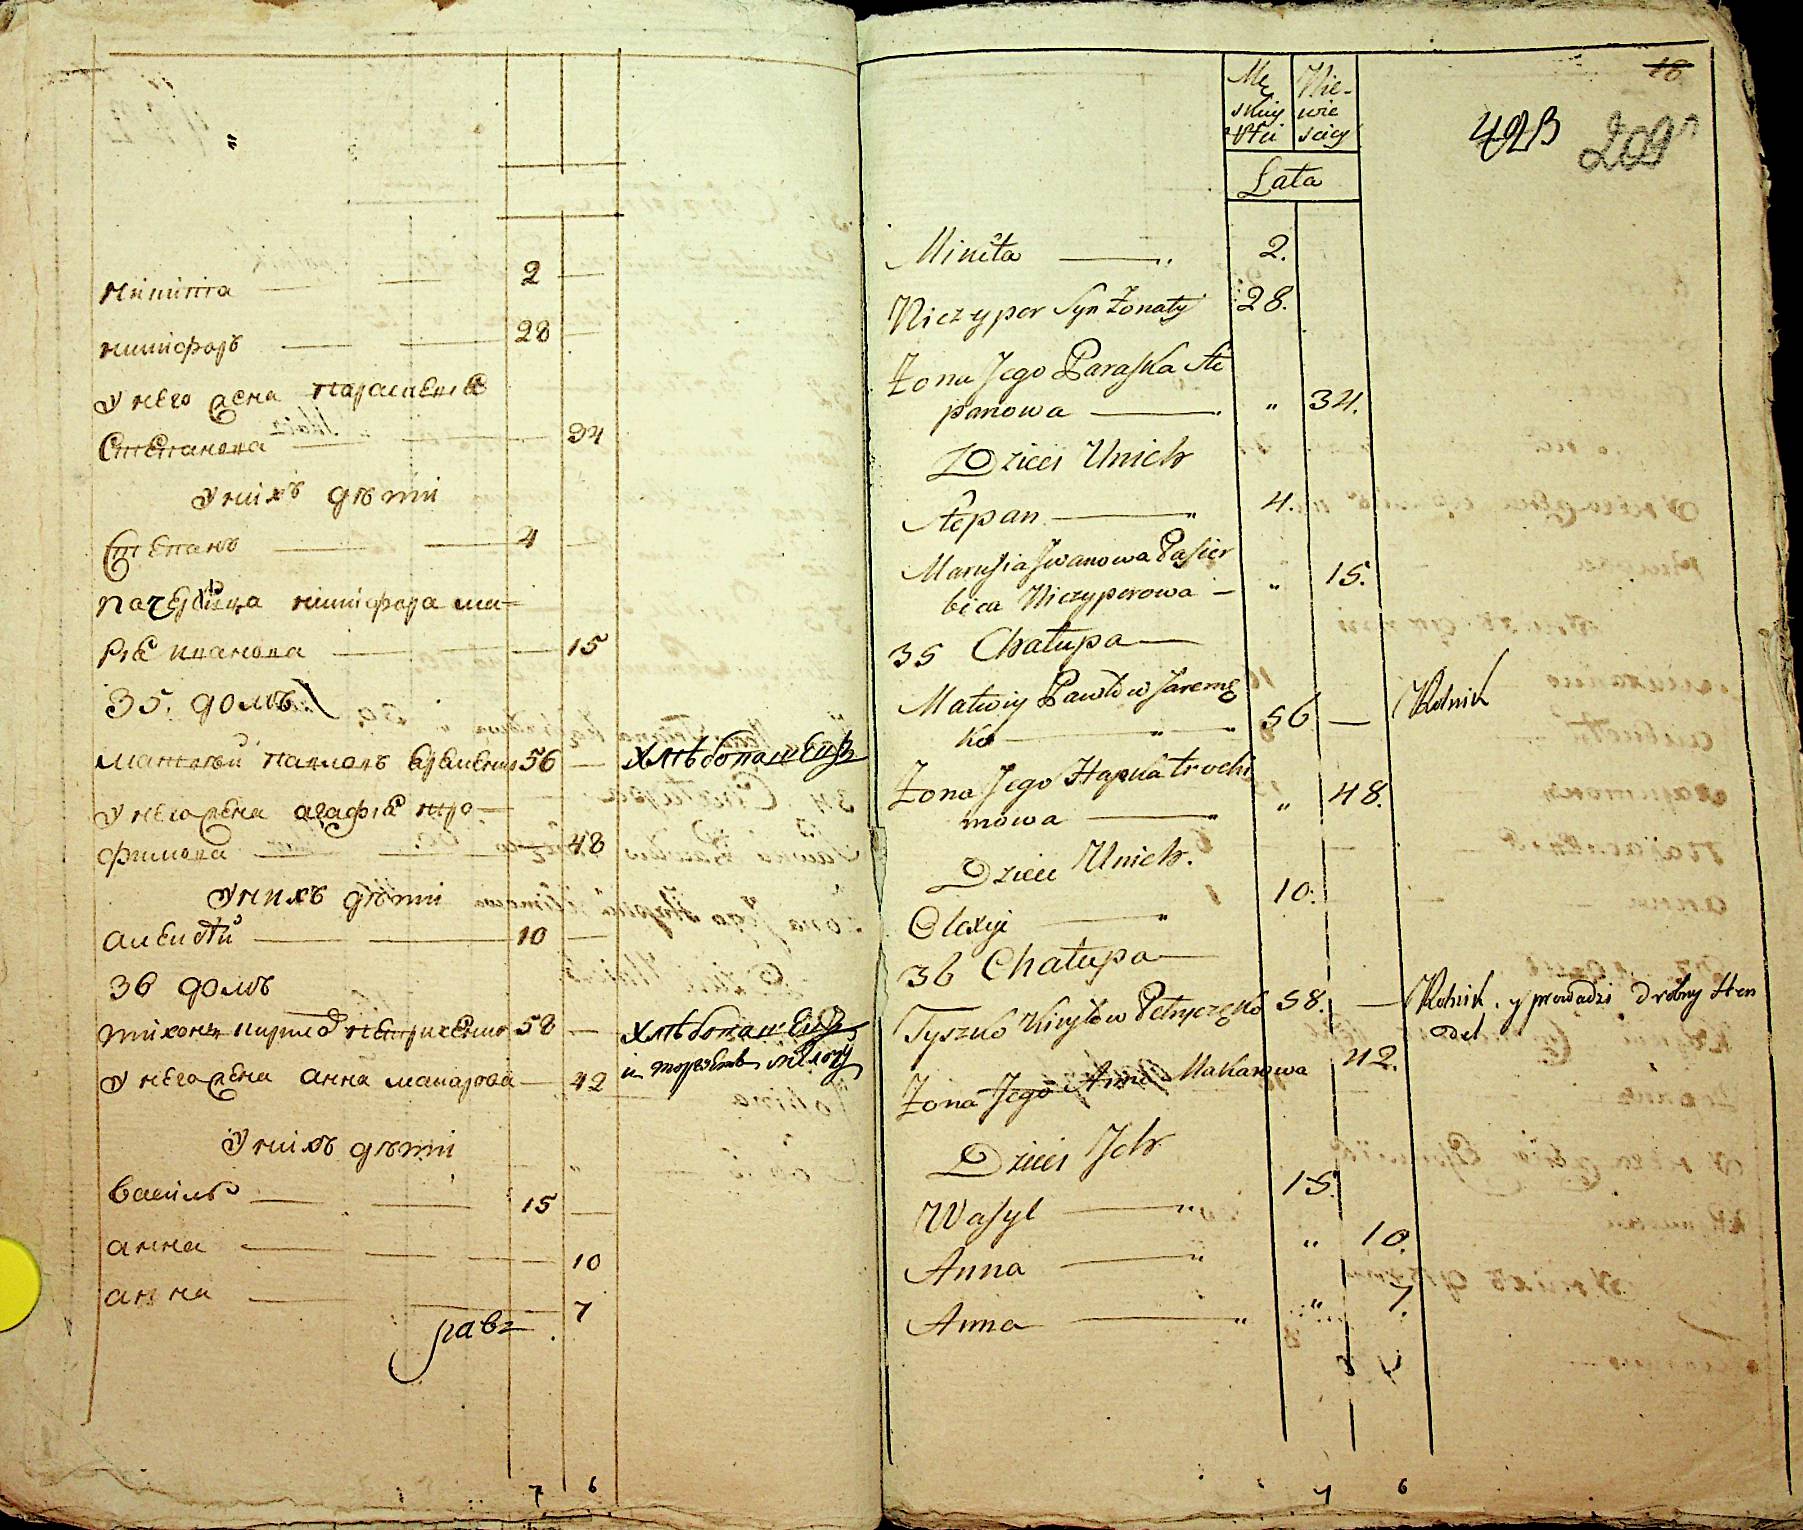 микита 2
никифоръ 28
У него жена параскевиа
Степанова 34
У нихъ дѣти
Степанъ 4
падчерица никифора ма-
риа иванова 15
35. домъ
матвѣй павловъ еременко 56 хлѣбопашецъ
У него жена агафиа тро-
фимова 48
У нихъ дѣти
алексѣй 10
36 домъ
тихонъ кириловъ петриченко 58 хлѣбопашецъ
и торгъ
У него жена анна макарова 42
У нихъ дѣти
василь 15
анна 10
анна 7
7 6
18
Mę Nie-
skiey wie
Płci sciey
49B 209
Lata
Mikita 2.
Niczypor Syn Żonaty 28.
Żona Jego Paraska Ste
panowa " 34.
Dzieci Unich
Stepan 4.
Marusia Jwanowa Pasier
bica Niczyporowa " 15.
35 Chałupa
Matwiy Pawłow Jaremę
ko 56 Rolnik
Żona Jego Hapka trochi
mowa " 48.
Dzieci Unich.
Olexiy 10.
36 Chałupa
Tyszko Kiryłow Petryczęko 58. Rolnik. y prowadzi Drobny Han
del
Żona Jego Anna Makarowa 42.
Dzieci Jch
Wasyl 15.
Anna " 10.
Anna " 7.
7 6